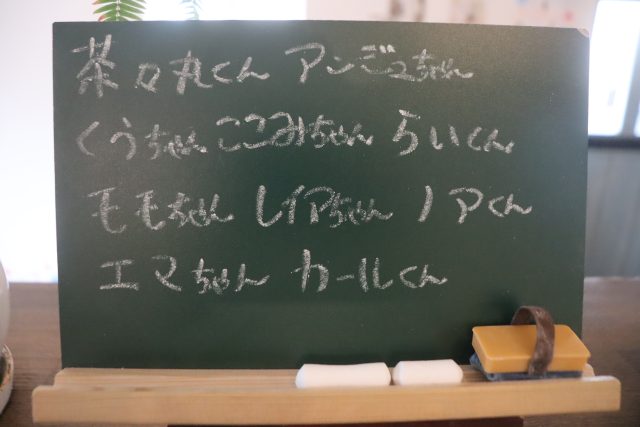 茶々丸くん アンジュちゃん
くうちゃん ここみちゃん らいくん
モモちゃん レイアちゃん ノアくん
エマちゃん カールくん